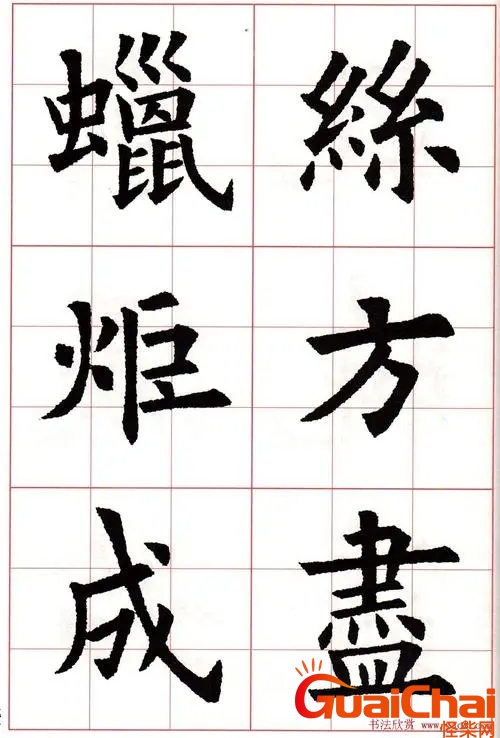 絲方盡
蠟炬成
GuaiChai
怪柴网
书法欣赏